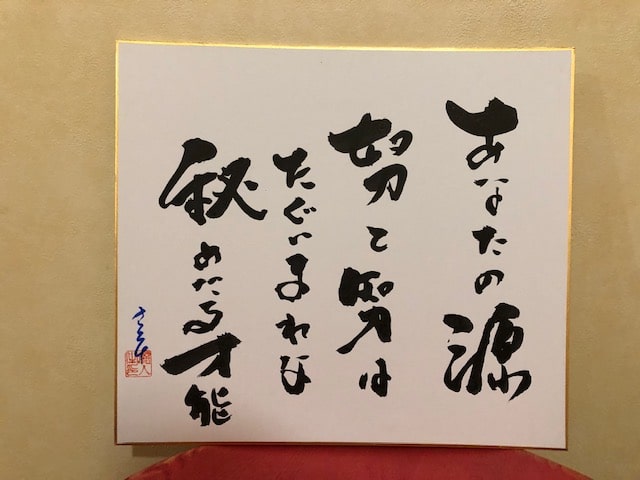 あなたの源
努と は
たぐいまれな
秘めたる才能